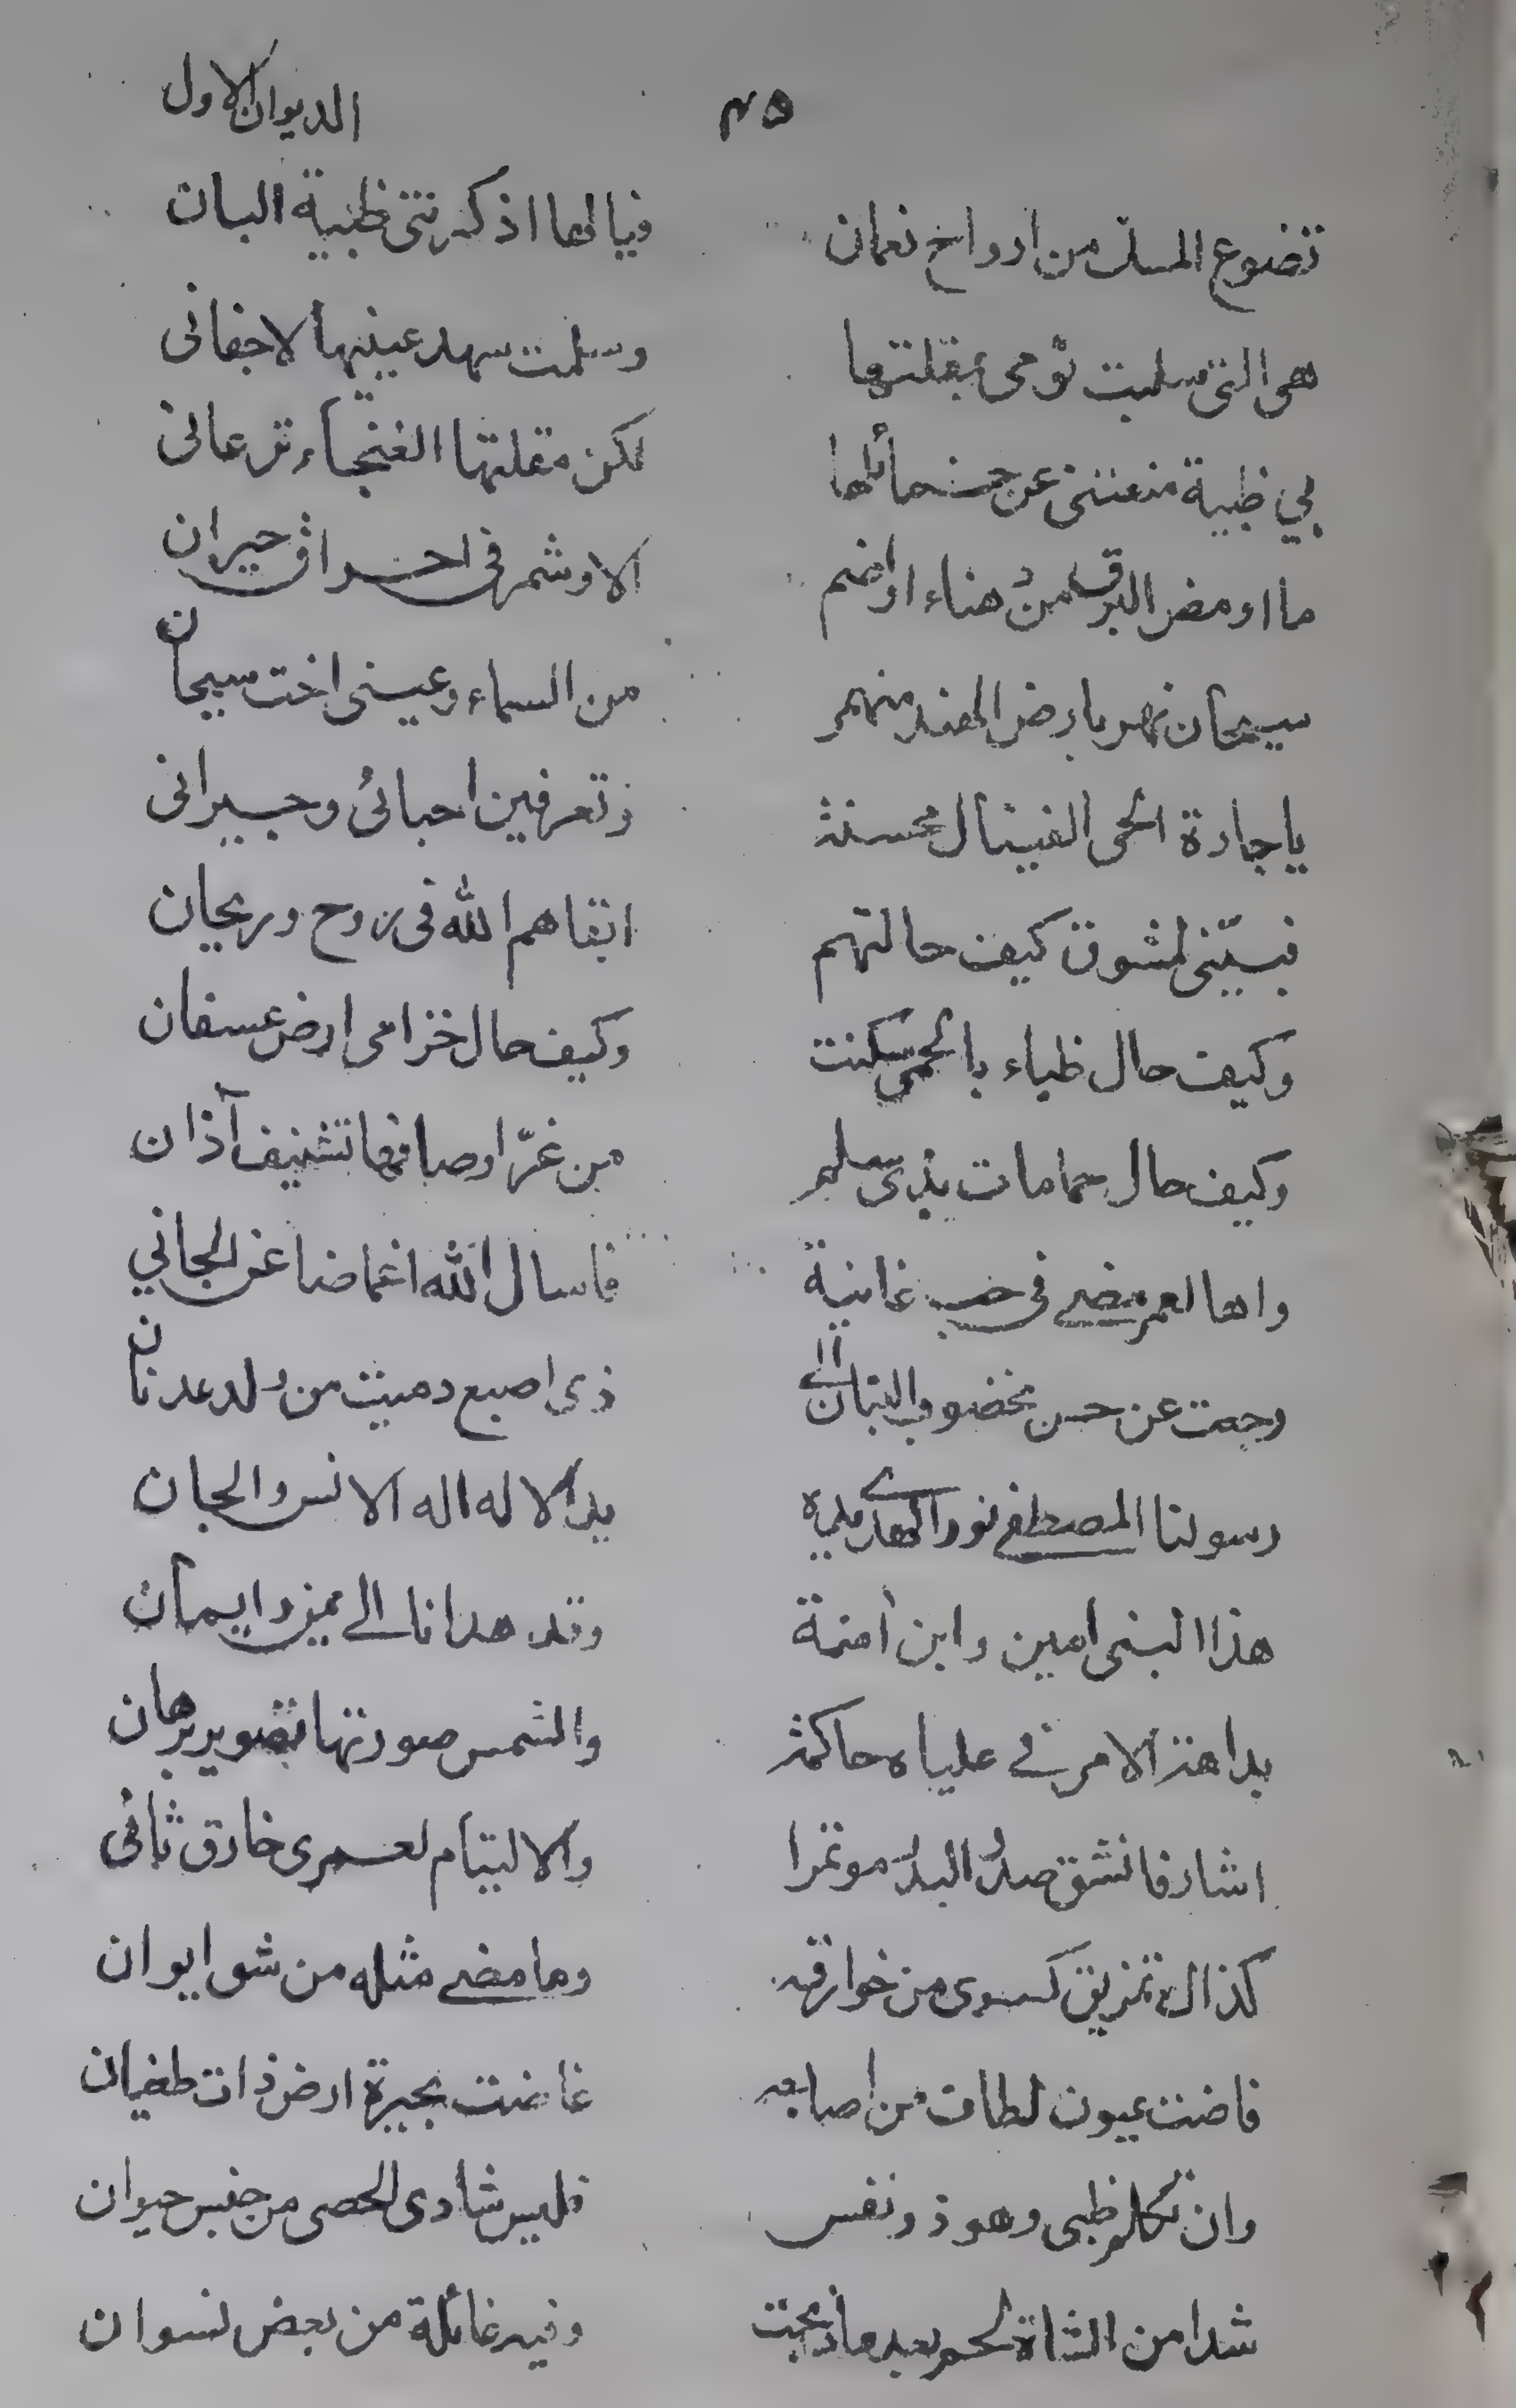 الديوان الاول
٣٥
تضوع المسك من ارواح نعمان فيالها اذكرتنى ظبية البان
هى التى سلبت نومى بمقلتها وسلمت سهد عينيها لاجفانى
بي ظبية منعتنى عن حمائلها لكن مقلتها الغنجاء ترعانى
ما اومض البرق من هناء او اضم الا وشمر فى احراق حيران
سيحان نهر بارض الهند منهمر من السماء وعينى اخت سيحان
يا جارة الحى الفينال محسنة وتعرفين احبائى وجيرانى
فبيّنى لمشوق كيف حالتهم ابقاهم الله فى روح وريحان
وكيف حال ظباء بالحمى سكنت وكيف حال خزامى ارض عسفان
وكيف حال حمامات بذى سلم من غرّ اوصافها تشنيف آذان
واها لعمر مضى فى حب غانية فاسال الله اغماضا عن الجاني
رجعت عن حسن مخضوب البنان الى ذى اصبع دميت من ولد عدنان
رسولنا المصطفى نور الهدى يد الاله اله الانس والجان
هذا النبى امين وابن آمنة وقد هدانا الى يمن وايمان
بدا هذ الامر فى علياه حاكمة والشمس صورتها تصوير برهان
اشار فانشق صدر البدر موتمرا والالتيام لعمرى خارق ثانى
كذاك تمزيق كسرى من خوارقه وما مضى مثله من شق ايوان
فاضت عيون لطاف من اصابعه غاضت بحيرة ارض ذات طغيان
وان تكلم ظبى وهو ذو نفس فليس شادى الحصى من جنس حيوان
شدا من الشاة لحم بعد ما ذبحت وفيه غائلة من بعض نسوان